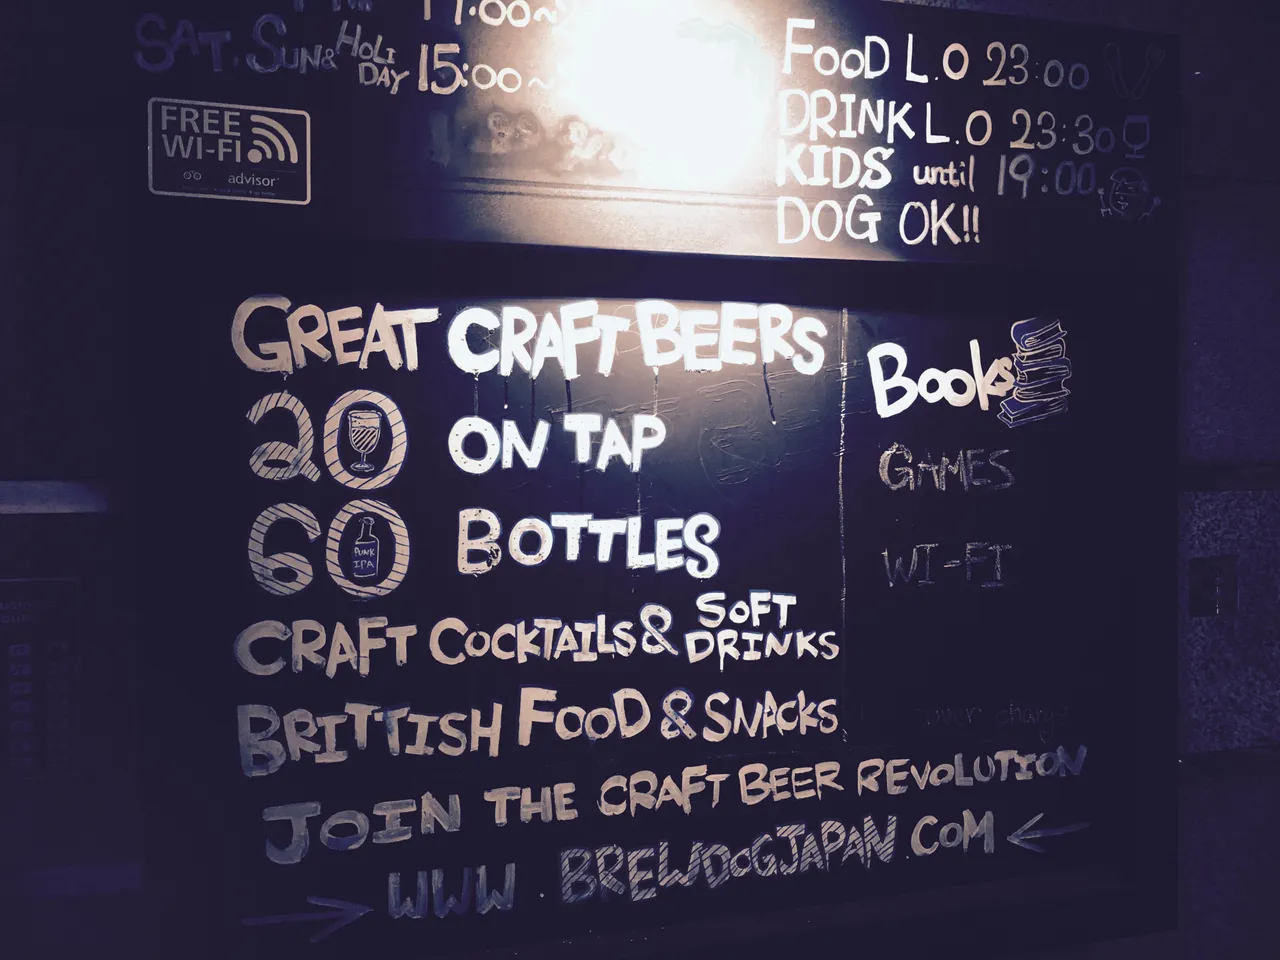 17:00~
SAT. SUN & HOLIDAY 15:00~
FREE
WI-FI
advisor
FOOD L.O 23:00
DRINK L.O 23:30
KIDS until 19:00.
DOG OK!!
GREAT CRAFT BEERS
20 ON TAP
60 BOTTLES
PUNK
IPA
CRAFT COCKTAILS & SOFT DRINKS
BRITTISH FOOD & SNACKS
JOIN THE CRAFT BEER REVOLUTION
→ WWW.BREWDOGJAPAN.COM ←
BOOKS
GAMES
WI-FI
over charge